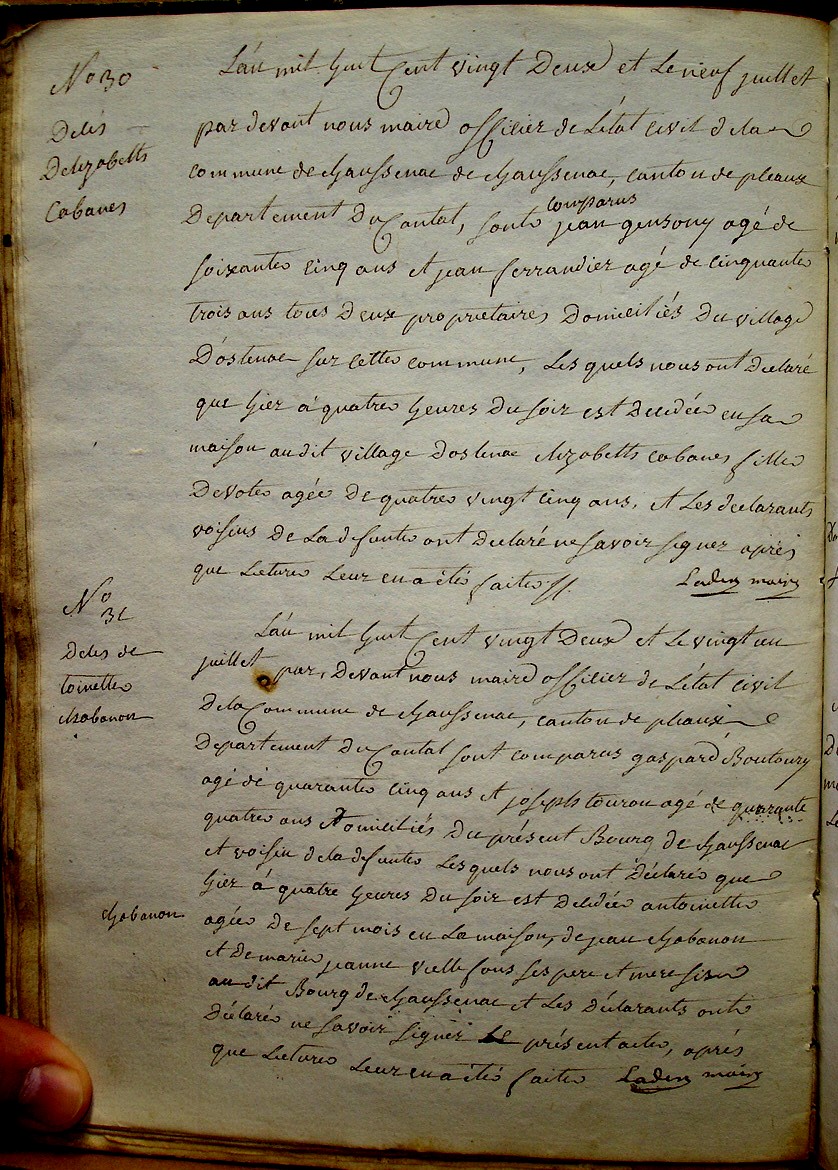 No 30
Décès
Delizabeth
Cabanes
L'án mil huit Cent vingt Deux et Le neuf juillet
par devant nous maire officier de L'état civil de la
commune de chaussenac de chaussenac, canton de pleaux
Departement Du Cantal, sont comparus jean gensony agé de
soixante cinq ans et jean ferrandier agé de cinquante
trois ans tous Deux proprietaires Domiciliés Du village
D'ostenac sur cette commune, Les quels nous ont Déclaré
que hier à quatre heures Du soir est Decedée en sa
maison au dit village Dostenac Elizabeth cabanes fille
Devote agée De quatre vingt cinq ans, et Les declarants
voisins De La defunte ont Declaré ne savoir signer après
que Lecture Leur en a été faite //.
Laden maire
No
31
Décès de
toinette
chabanon
L'án mil huit Cent vingt Deux et Le vingt un
juillet par, Devant nous maire officier de L'état civil
De la Commune de chaussenac, canton de pleaux
Departement Du Cantal sont comparus gaspard Boutoury
agé de quarante cinq ans et joseph tourou agé de quarante
quatre ans Domiciliés Du présent Bourg de chaussenac
et voisin de la defunte Lesquels nous ont Déclaré que
hier à quatre heures Du soir est Decedée antoinette
chabanon
agée De sept mois en La maison, de jean chabanon
et De marie jeanne vielle fons ses pere et mere sise
au dit Bourg de chaussenac et Les Déclarants ont
Déclaré ne savoir signer Le présent acte, après
que Lecture Leur en a été faite Laden maire